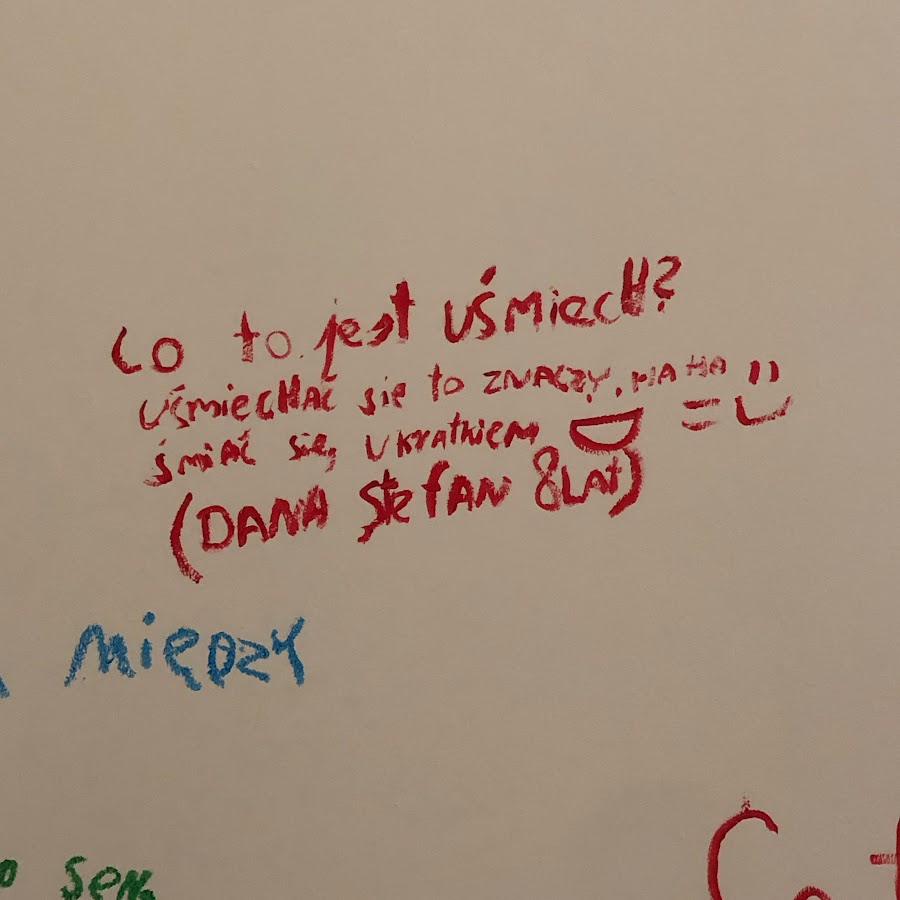 Co to jest uśmiech?
uśmiechać się to znaczy, haha
śmiać się, ukratkiem =
(DANA Ștefan 8 LAt)
między
sen
Co